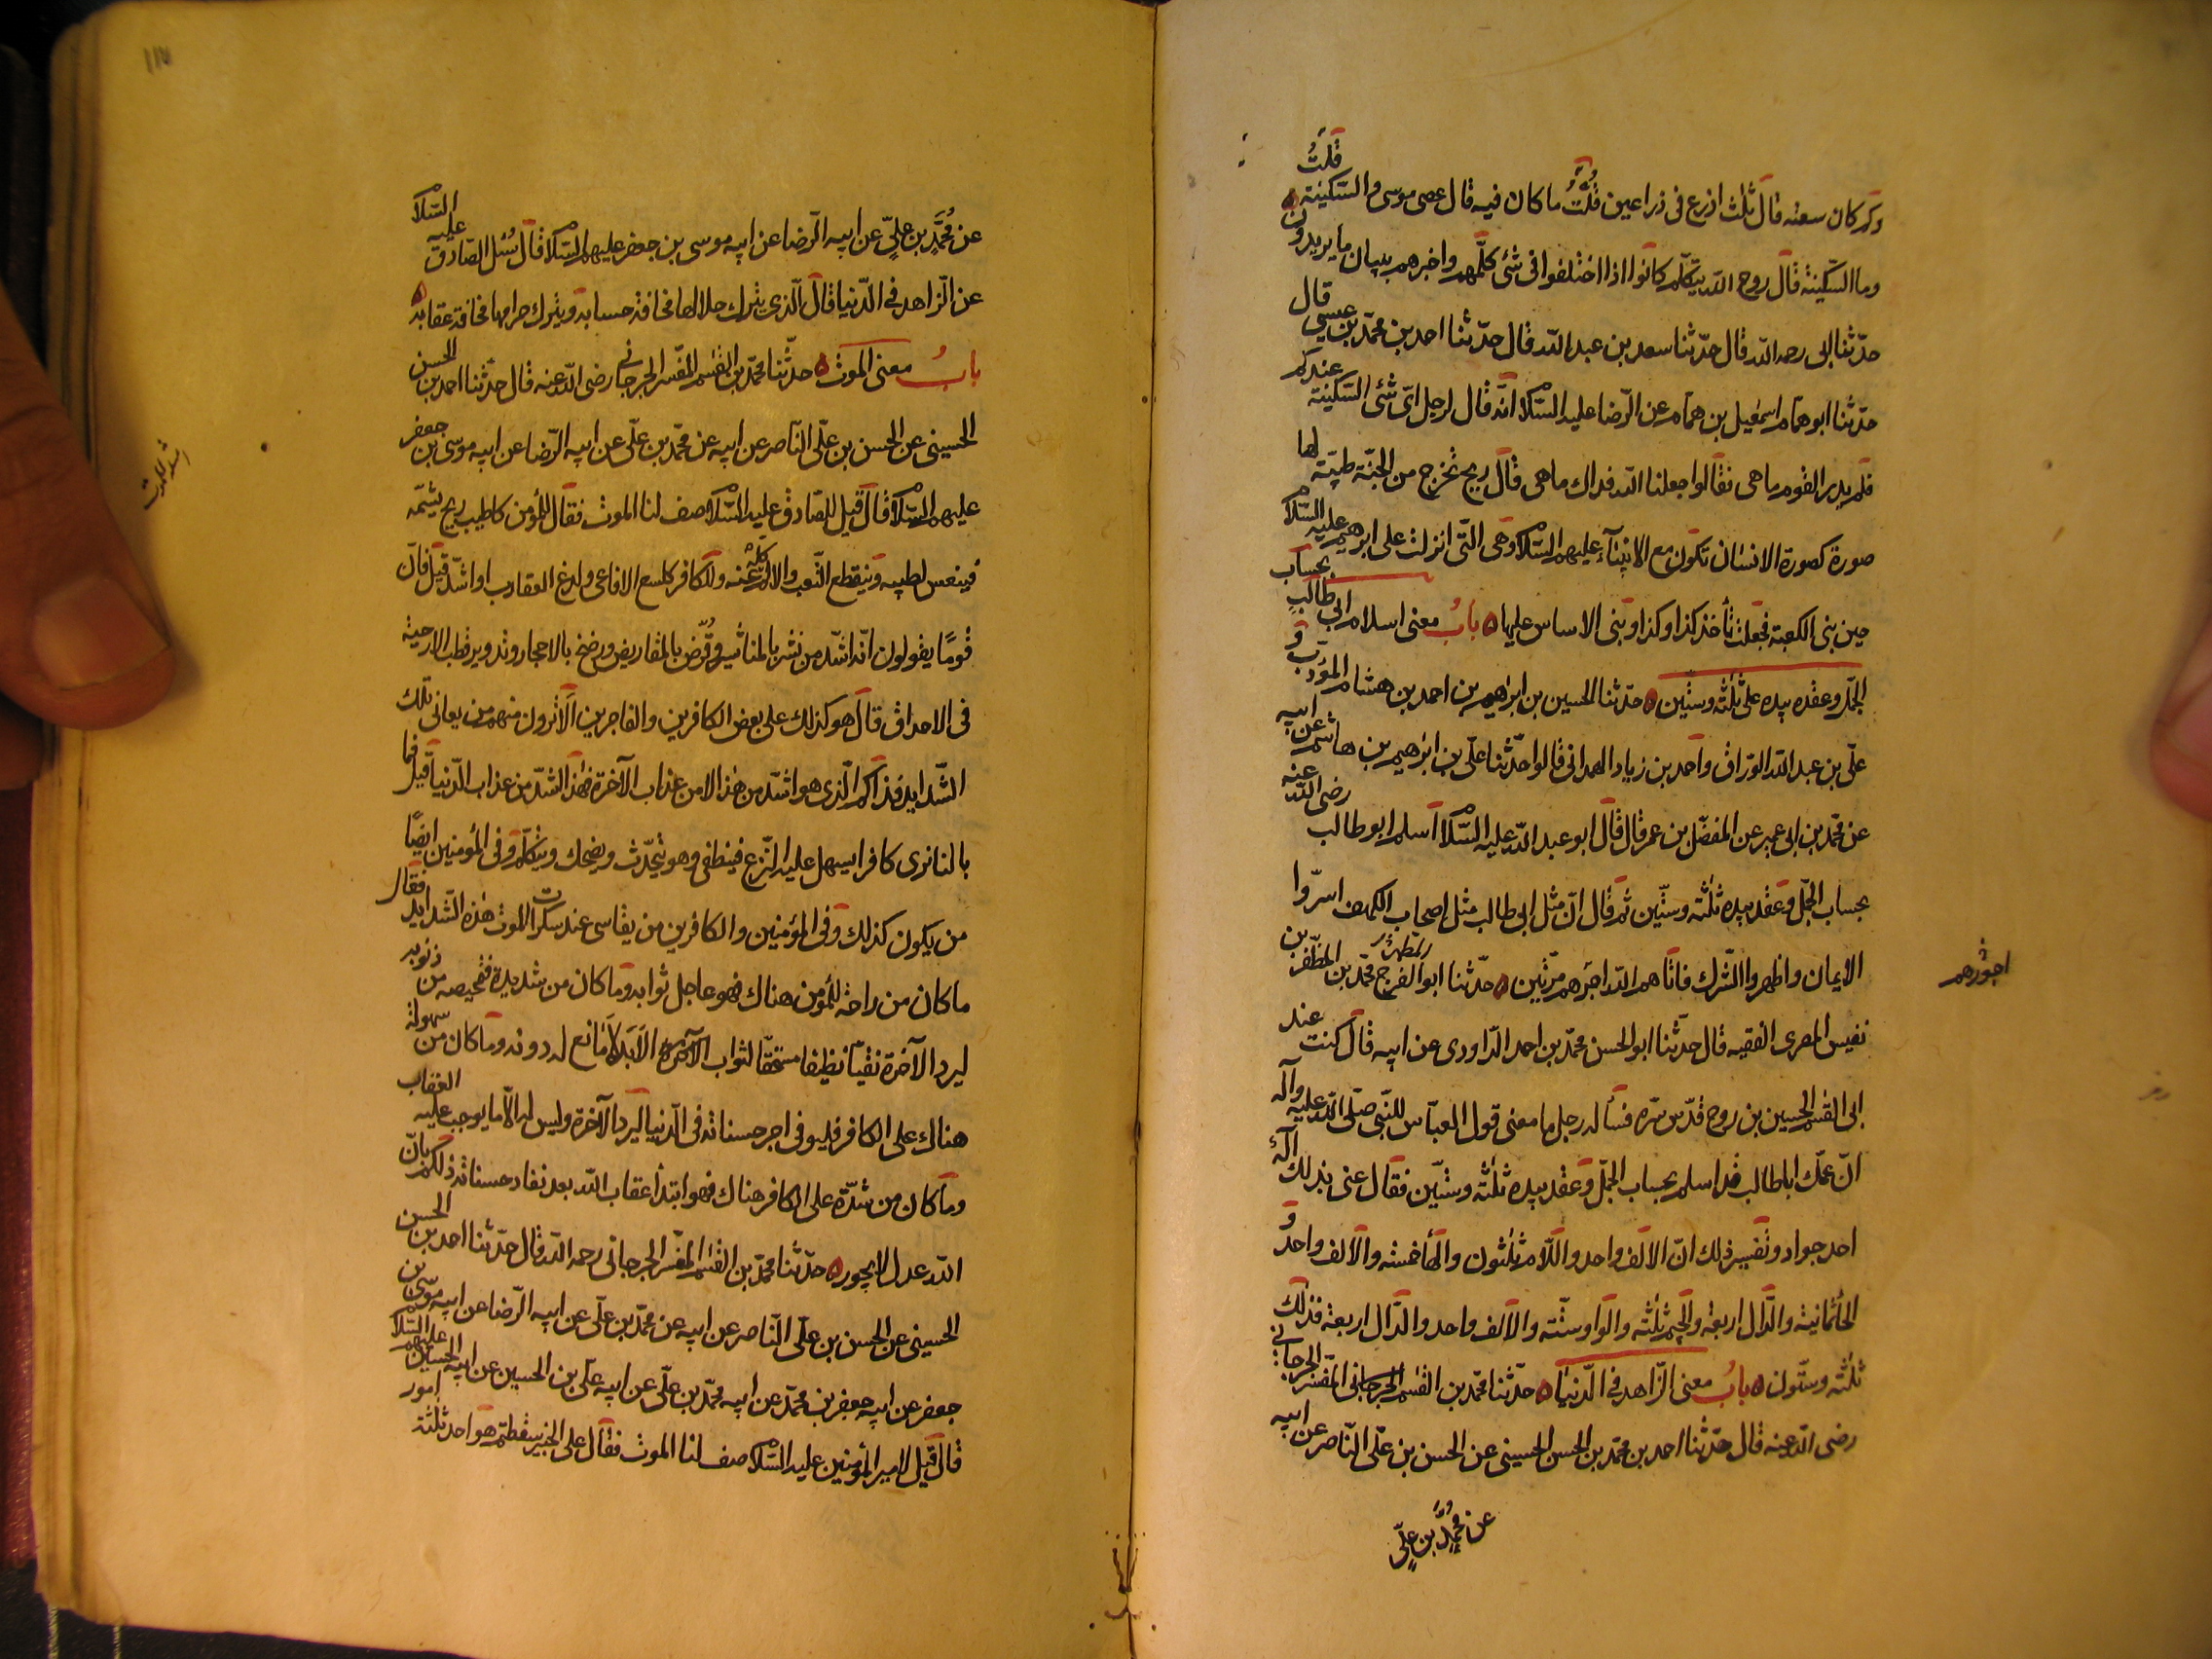 وكم كان سعته قال ثلث اذرع فى ذراعين قلتُ ما كان فيه قال عصى موسى والسّكينة قلتُ
وما السّكينة قال روح اللّه يتكلّم كانوا اذا اختلفوا فى شئ كلّمهم واخبرهم ببيان ما يريدون
حدّثنا ابى رحمه اللّه قال حدّثنا سعد بن عبد اللّه قال حدّثنا احمد بن محمّد بن عيسى قال
حدّثنا ابو همّام اسمعيل بن همّام عن الرّضا عليه السّلام انّه قال لرجل اىّ شئ السّكينة عندكم
فلم يدر القوم ما هى فقالوا جعلنا اللّه فداك ما هى قال ريح تخرج من الجنّة طيّبة لها
صورة كصورة الانسان تكون مع الانبيآء عليهم السّلام وهى الّتى انزلت على ابرهيم عليه السّلام
حين بنى الكعبة فجعلت تأخذ كذا وكذا وبنى الاساس عليها باب معنى اسلام ابى طالب بحساب
الجمّل وعقده بيده على ثلثة وستّين حدّثنا الحسين بن ابرهيم بن احمد بن هشام المؤدّب و
علىّ بن عبد اللّه الورّاق واحمد بن زياد الهمدانى قالوا حدّثنا علىّ بن ابرهيم بن هاشم عن ابيه
عن محمّد بن ابى عمير عن المفضّل بن عمر قال قال ابو عبد اللّه عليه السّلام اسلم ابو طالب رضى اللّه عنه
بحساب الجمّل وعقد بيده ثلثة وستّين ثم قال انّ مثل ابى طالب مثل اصحاب الكهف اسرّوا
الايمان واظهروا الشّرك فاتاهم اللّه اجرهم مرّتين حدّثنا ابو الفرج محمّد بن المظفّر بن
اجورهم
نفيس المصرى الفقيه قال حدّثنا ابو الحسن محمّد بن احمد الدّاودى عن ابيه قال كنت عند
ابى القسم الحسين بن روح قدّس سرّه فسأله رجل ما معنى قول العبّاس للنّبى صلّى اللّه عليه وآله
انّ عمّك ابا طالب قد اسلم بحساب الجمّل وعقد بيده ثلثة وستّين فقال عنى بذلك اله
احد جواد وتفسير ذلك انّ الالف واحد واللّام ثلثون والهآ خمسة والالف واحد و
الحآ ثمانية والدّال اربعة والجيم ثلثة والواو ستّة والالف واحد والدّال اربعة فذلك
ثلثة وستّون باب معنى الزّاهد فى الدّنيا حدّثنا محمّد بن القسم الجرجانى المفسّر الجرجانى
رضى اللّه عنه قال حدّثنا احمد بن محمّد بن الحسن الحسينى عن الحسن بن علىّ النّاصر عن ابيه
عن محمّد بن علىّ
عن محمّد بن علىّ عن ابيه الرّضا عن ابيه موسى بن جعفر عليهم السّلام قال سُئل الصّادق عليه السّلام
عن الزّاهد فى الدّنيا قال الّذى يترك حلالها مخافة حسابه ويترك حرامها مخافة عقابه
باب معنى الموت حدّثنا محمّد بن القسم المفسّر الجرجانى رضى اللّه عنه قال حدّثنا احمد بن الحسن
الحسينى عن الحسن بن علىّ النّاصر عن ابيه عن محمّد بن علىّ عن ابيه الرّضا عن ابيه موسى بن جعفر
عليهم السّلام قال قيل للصّادق عليه السّلام صف لنا الموت فقال للمؤمن كاطيب ريح يشمّه
فينعس لطيبه وينقطع التّعب والالم كلّه عنه وللكافر كلسع الافاعى ولدغ العقارب او اشدّ قيل فانّ
قومًا يقولون انّه اشدّ من نشر بالمناشير وقرّض بالمقاريض ورضخ بالاحجار وتدوير قطب الارحية
فى الاحداق قال هو كذلك على بعض الكافرين والفاجرين الا ترون منهم من يعانى تلك
الشّدايد فذاكم الّذى هو اشدّ من هذا الا من عذاب الآخرة فهذا اشدّ من عذاب الدّنيا قيل فما
بالنا نرى كافرا يسهل عليه النّزع فينطفى وهو يتحدّث ويضحك ويتكلّم وفى المؤمنين ايضًا
من يكون كذلك وفى المؤمنين والكافرين من يقاسى عند سكرات الموت هذه الشّدايد فقال
ما كان من راحة للمؤمن هناك فهو عاجل ثوابه وما كان من شديدة فتمحيصه من ذنوبه
ليرد الآخرة نقيّا نظيفا مستحقّا لثواب الابد لا مانع له دونه وما كان من سهولة
هناك على الكافر فليوفى اجر حسناته فى الدّنيا ليرد الآخرة وليس له الّا ما يوجب عليه العقاب
وما كان من شدّة على الكافر هناك فهو ابتدآ عقاب اللّه بعد نفاد حسناته ذلكم بانّ
اللّه عدل لا يجور حدّثنا محمّد بن القسم المفسّر الجرجانى رحمه اللّه قال حدّثنا احمد بن الحسن
الحسينى عن الحسن بن علىّ النّاصر عن ابيه عن محمّد بن علىّ عن ابيه الرّضا عن ابيه موسى بن
جعفر عن ابيه جعفر بن محمّد عن ابيه محمّد بن علىّ عن ابيه علىّ بن الحسين عن ابيه الحسين عليهم السّلام
قال قيل لامير المؤمنين عليه السّلام صف لنا الموت فقال على الخبير سقطتم هو احد ثلثة امور